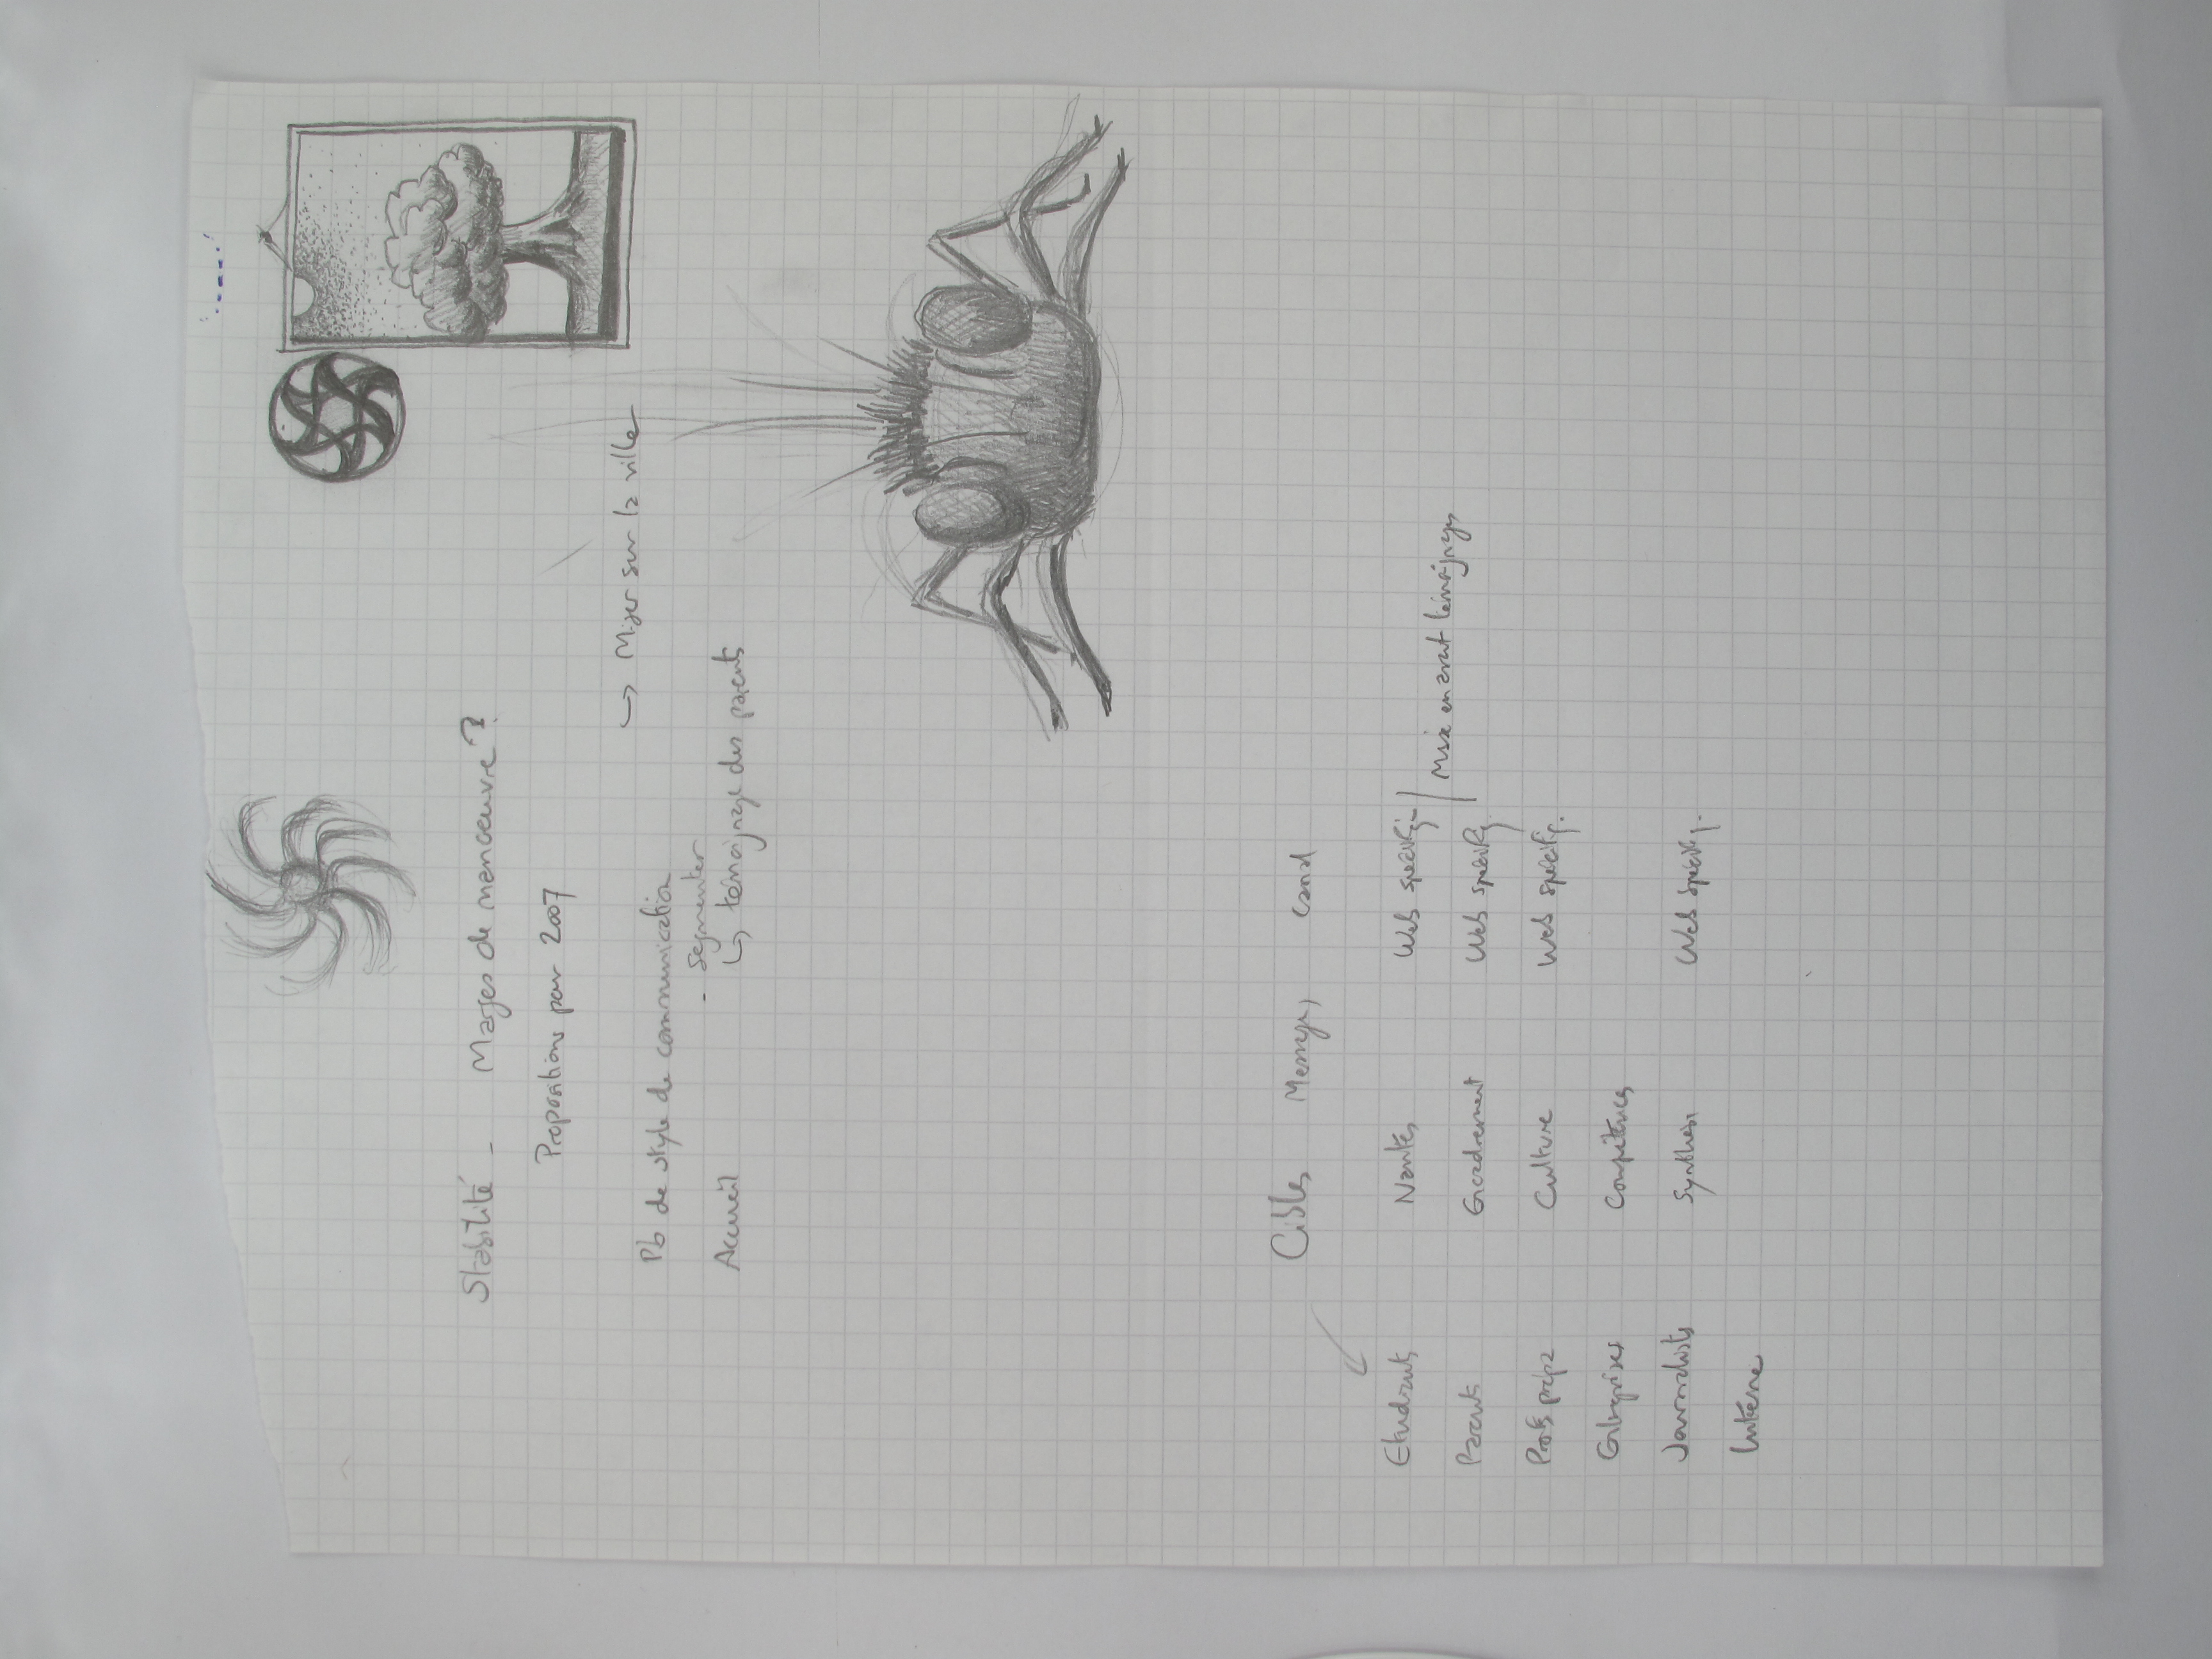 Stabilité - Marges de manoeuvre ?
Propositions pour 2007
↳ Miser sur la ville
Pb de style de communication
- Segmenter
Accueil ↳ témoignage des parents
Cibles Messages canal
Etudiants Nantes Web specifiq.
Mise en avant témoignages
Parents Encadrement Web specifiq.
Profs prépa Culture Web specifiq.
Entreprises Compétences
Journalistes Synthèse Web specifiq.
Interne